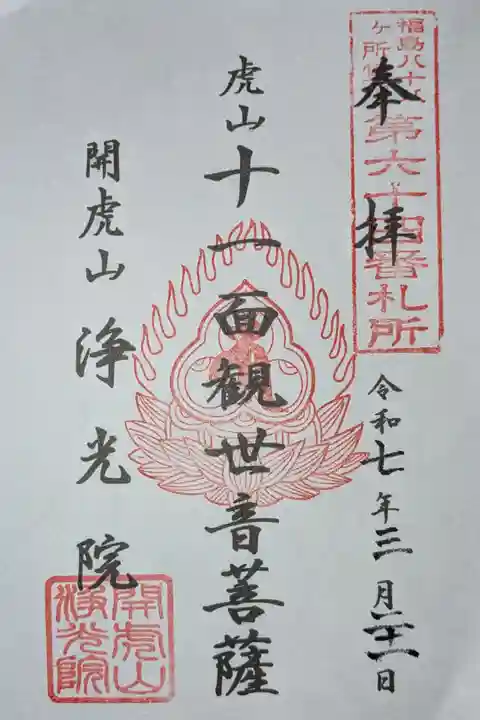 奉拝
福島八十八
ヶ所
第六十四番札所
令和七年三月二十一日
虎山十一面観世音菩薩
開虎山浄光院
開虎山
浄光院